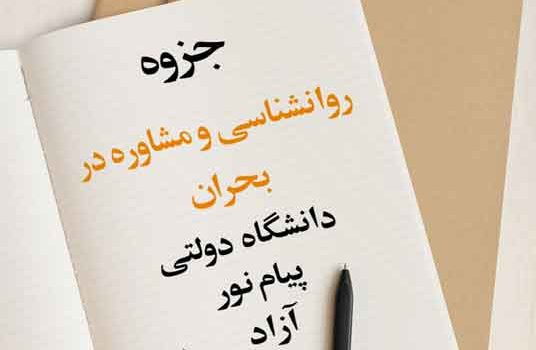 جزوه
روانشناسی و مشاوره در
بحران
دانشگاه دولتی
پیام نور
آزاد